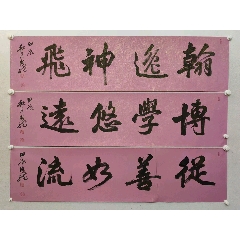 翰逸神飛
博學悠遠
從善如流